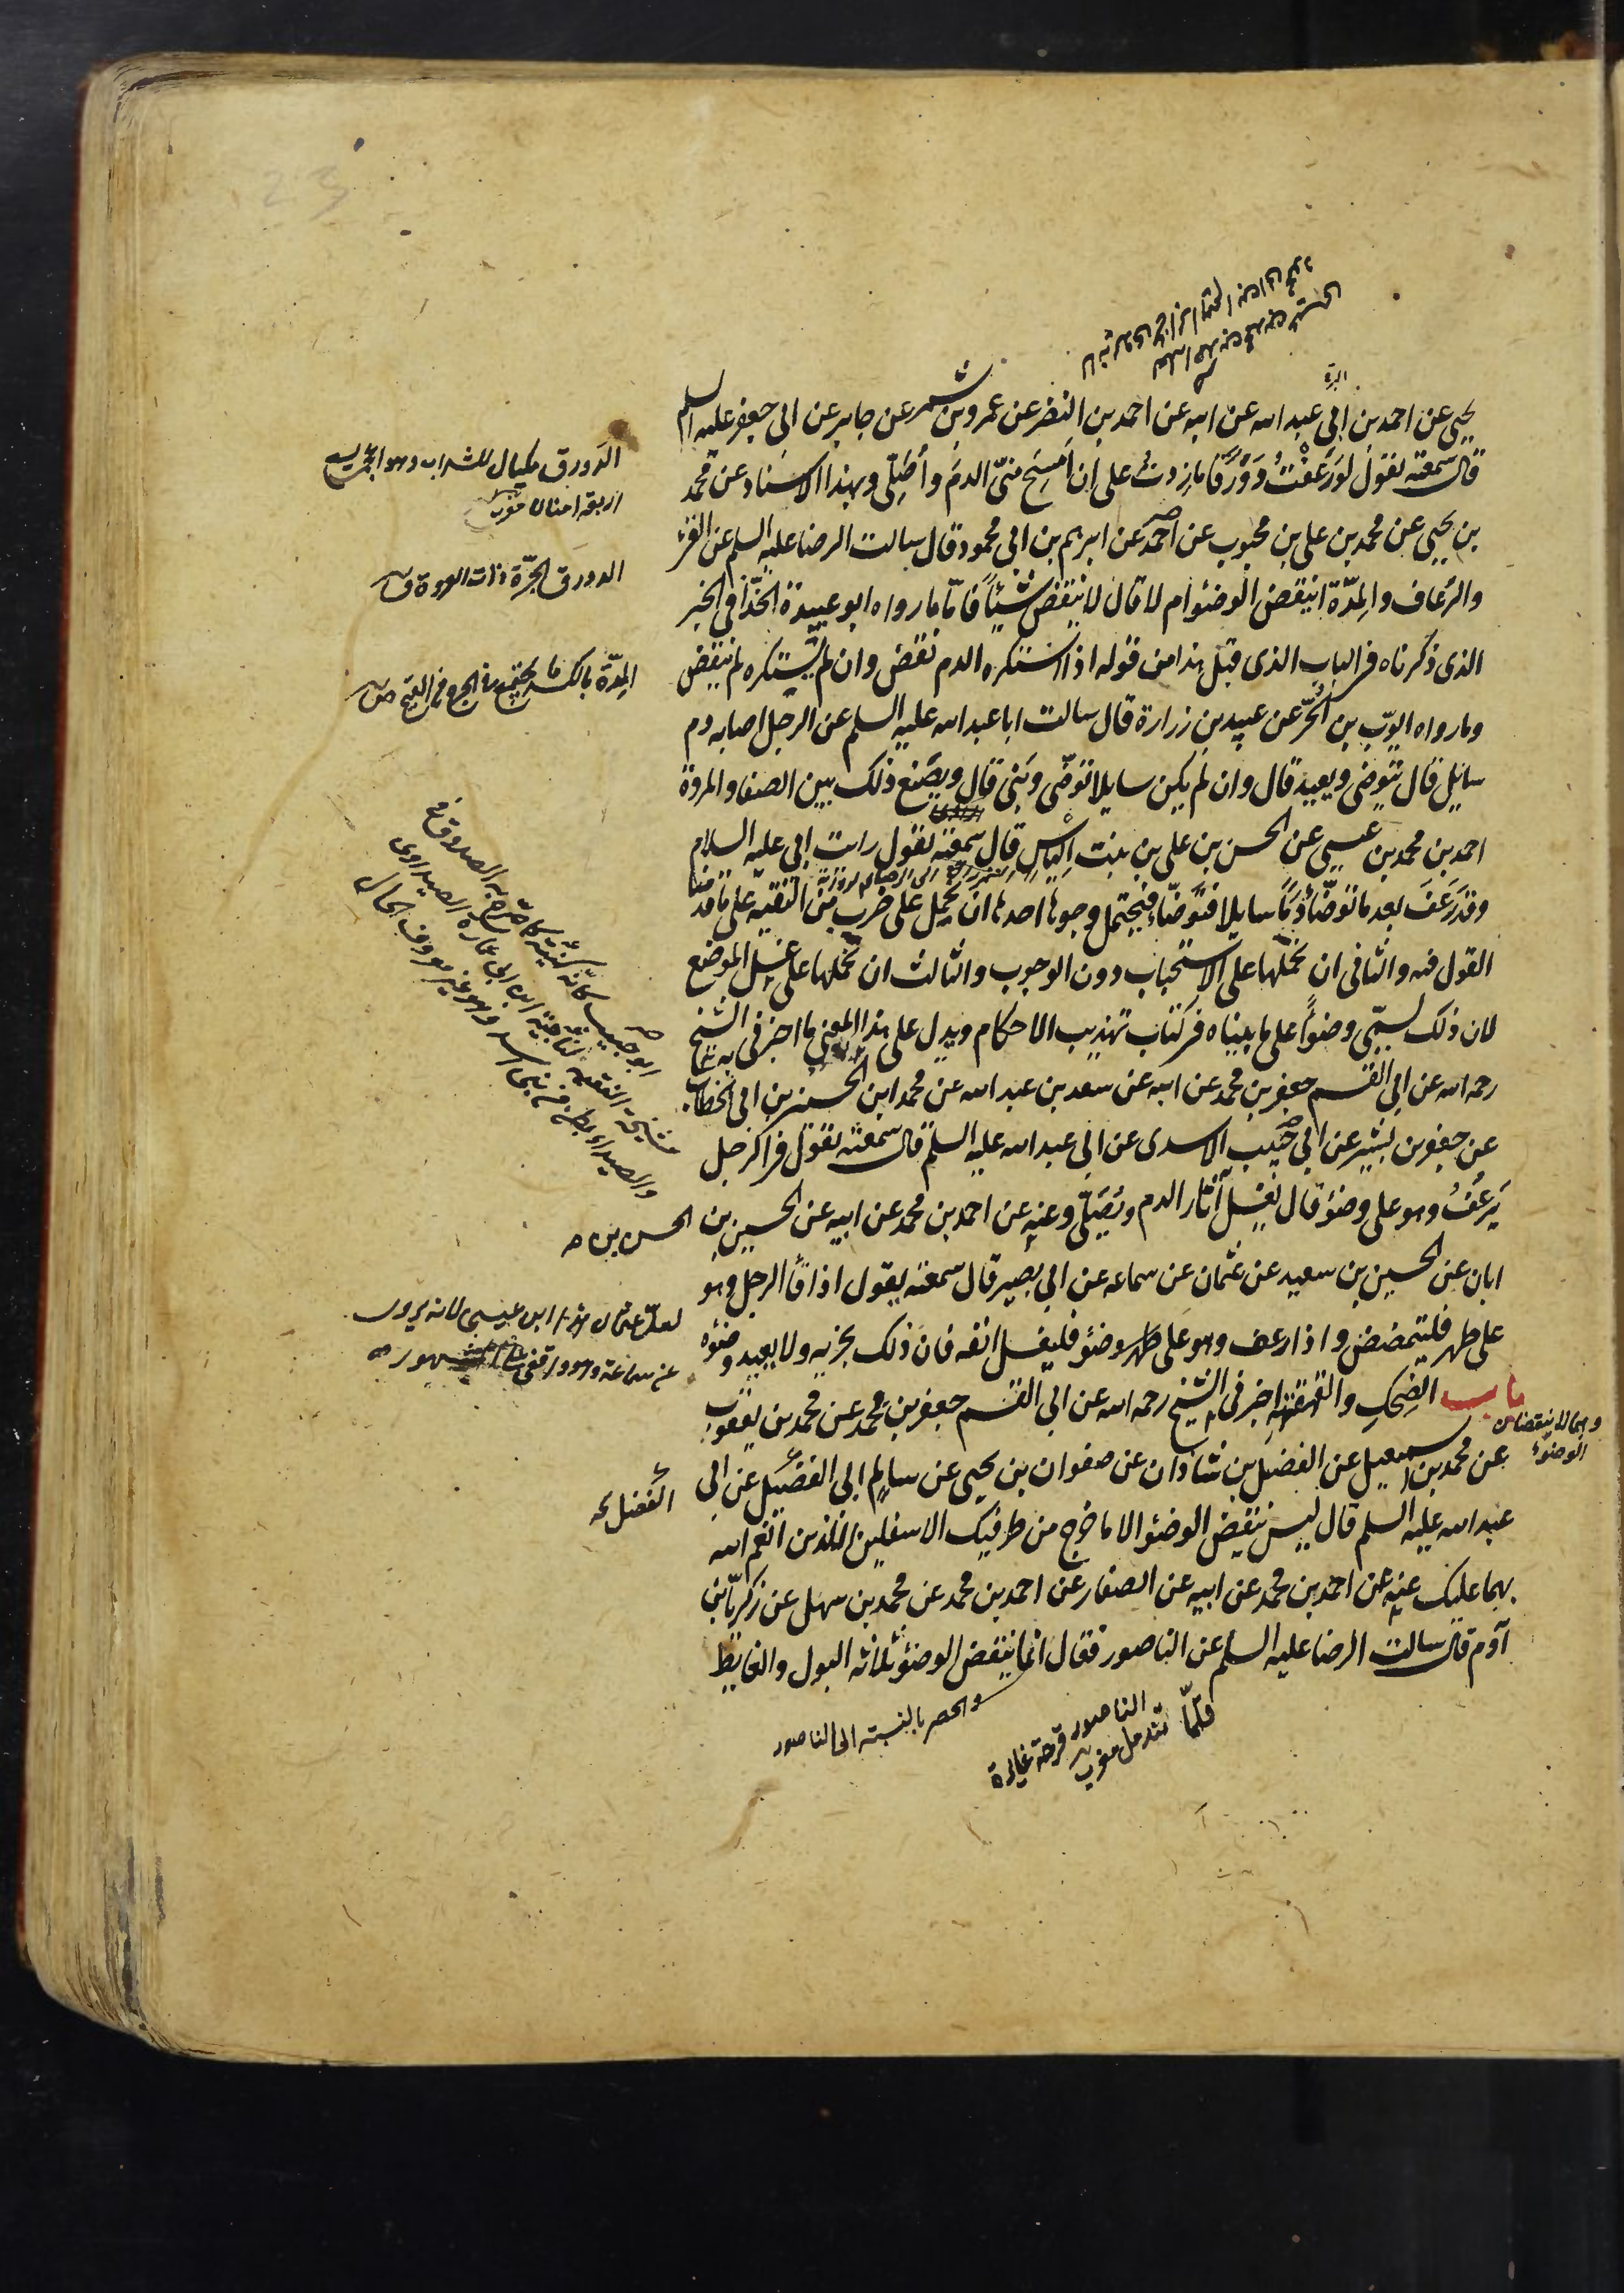 يحيى عن احمد بن ابي عبد الله عن ابيه عن احمد بن النضر عن عمرو بن شمر عن جابر عن ابي جعفر عليه السلم
قال سمعته يقول لو رَعَفْتُ دَوْرَقًا ما زدت على ان اَمسح منّي الدم وأصلّي وبهذا الاسناد عن محمد
بن يحيى عن محمد بن علي بن محبوب عن احمد عن ابرهيم بن ابي محمود قال سالت الرضا عليه السلم عن القئ
والرعاف والمِدّة اتنقض الوضوء ام لا قال لا تنقض شيئًا فامّا ما رواه ابو عبيدة الحذّا في الخبر
الذى ذكرناه في الباب الذى قبل هذا من قوله اذا استكره الدم نقض وان لم يستكره لم ينقض
وما رواه ايوب بن الحُرّ عن عبيد بن زرارة قال سالت ابا عبد الله عليه السلم عن الرجل اصابه دم
سايل قال يتوضى ويعيد قال وان لم يكن سايلا توضّى وبنى قال ويصنع ذلك بين الصفا والمروة
احمد بن محمد بن عيسى عن الحسن بن على بن بنت اِلياس قال سمعته يقول رايت ابي عليه السلام
وقد رَعَفَ بعد ما توضّأ دمًا سايلا فتوضّأ فيحتمل وجوها احدها ان تحمل على ضرب من التقيّه على ما قدمنا
القول فيه والثانى ان نحملها على الاستحباب دون الوجوب والثالث ان نحملها على غسل الموضع
لان ذلك يسمّى وضوًا على ما بيناه في كتاب تهذيب الاحكام ويدل على هذا المعنى ما اخبرني به الشيخ
رحمه الله عن ابي القسم جعفر بن محمد عن ابيه عن سعد بن عبد الله عن محمد ابن الحسين بن ابي الخطاب
عن جعفر بن بشير عن ابي حبيب الاسدى عن ابي عبد الله عليه السلم قال سمعته يقول في الرجل
يَرعُفُ وهو على وضوء قال يغسل آثار الدم ويُصَلّى وعنه عن احمد بن محمد عن ابيه عن الحسين بن
الحسن بن
ابان عن الحسين بن سعيد عن عثمان عن سماعه عن ابي بصير قال سمعته يقول اذا قاَ الرجل وهو
على طهر فليتمضمض واذا رعف وهو على وضوء فليغسل انفه فان ذلك يجزيه ولا يعيد وضوئه
باب الضحك والقهقهة اخبرني الشيخ رحمه الله عن ابي القسم جعفر بن محمد عن محمد بن يعقوب
عن محمد بن اسمعيل عن الفضل بن شاذان عن صفوان بن يحيى عن سالم ابي الفضيل عن ابي
عبد الله عليه السلم قال ليس ينقض الوضوء الا ما خرج من طرفيك الاسفلين اللذين انعم الله
بهما عليك عنه عن احمد بن محمد عن ابيه عن الصفار عن احمد بن محمد عن محمد بن سهل عن زكريّا بن
آدم قال سالت الرضا عليه السلم عن الناصور فقال انما ينقض الوضوء ثلاثه البول والغايط
الدورق مكيال للشراب وهو اعجمى
اربعة امنان مغرب
الدورق الجرّة ذات العروة ق
المِدّة بالكسر ما يجتمع في الجرح من القيح ص
ابو حبيب كانّه كنية
مشيخة الفقيه
والصيداء بطن من بنى اسد وهو غير معروف الحال
لعل عثمان هذا ابن عيسى لانه يروى
عن سماعة وهو واقفى
الفضل
وهما لا ينقضان
الوضوء
والحصر بالنسبة الى الناصور
الناصور قرحة غايرة
قلّما تندمل مغرب